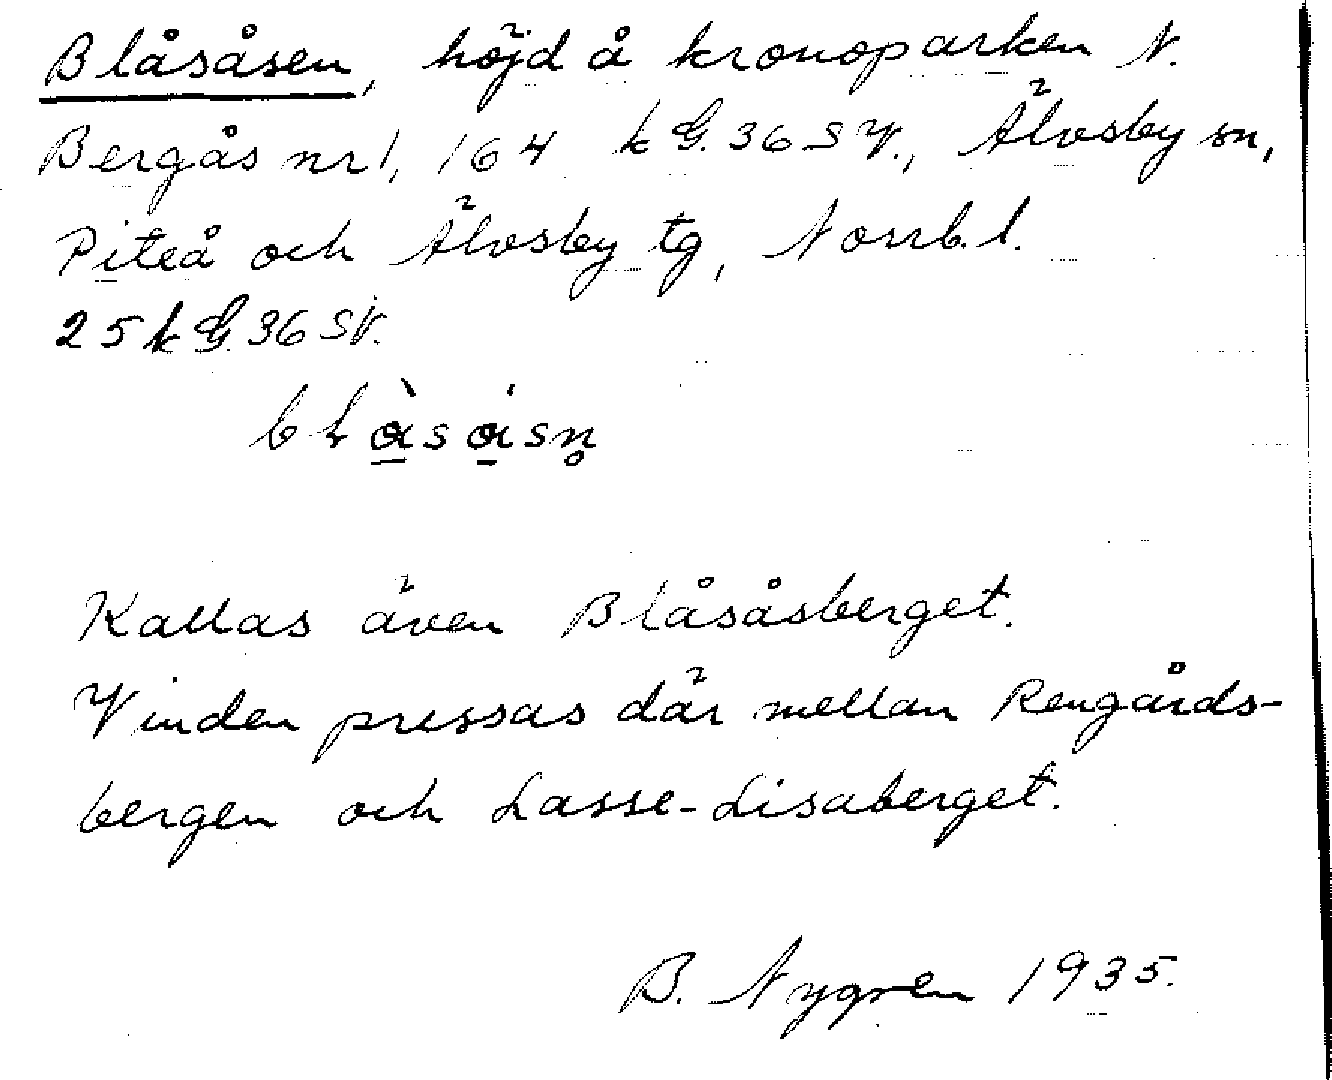 Blåsåsen, höjd å kronoparken N.
Bergås nr 1, 164 k G. 36 SV., Älvsby sn,
Piteå och Älvsby tg, Norrb. l.
25 k G. 36 SV.
Kallas även Blåsåsberget.
Vinden pressas där mellan Rengårds-
bergen och Lasse-Lisaberget.
B. Nygren 1935.